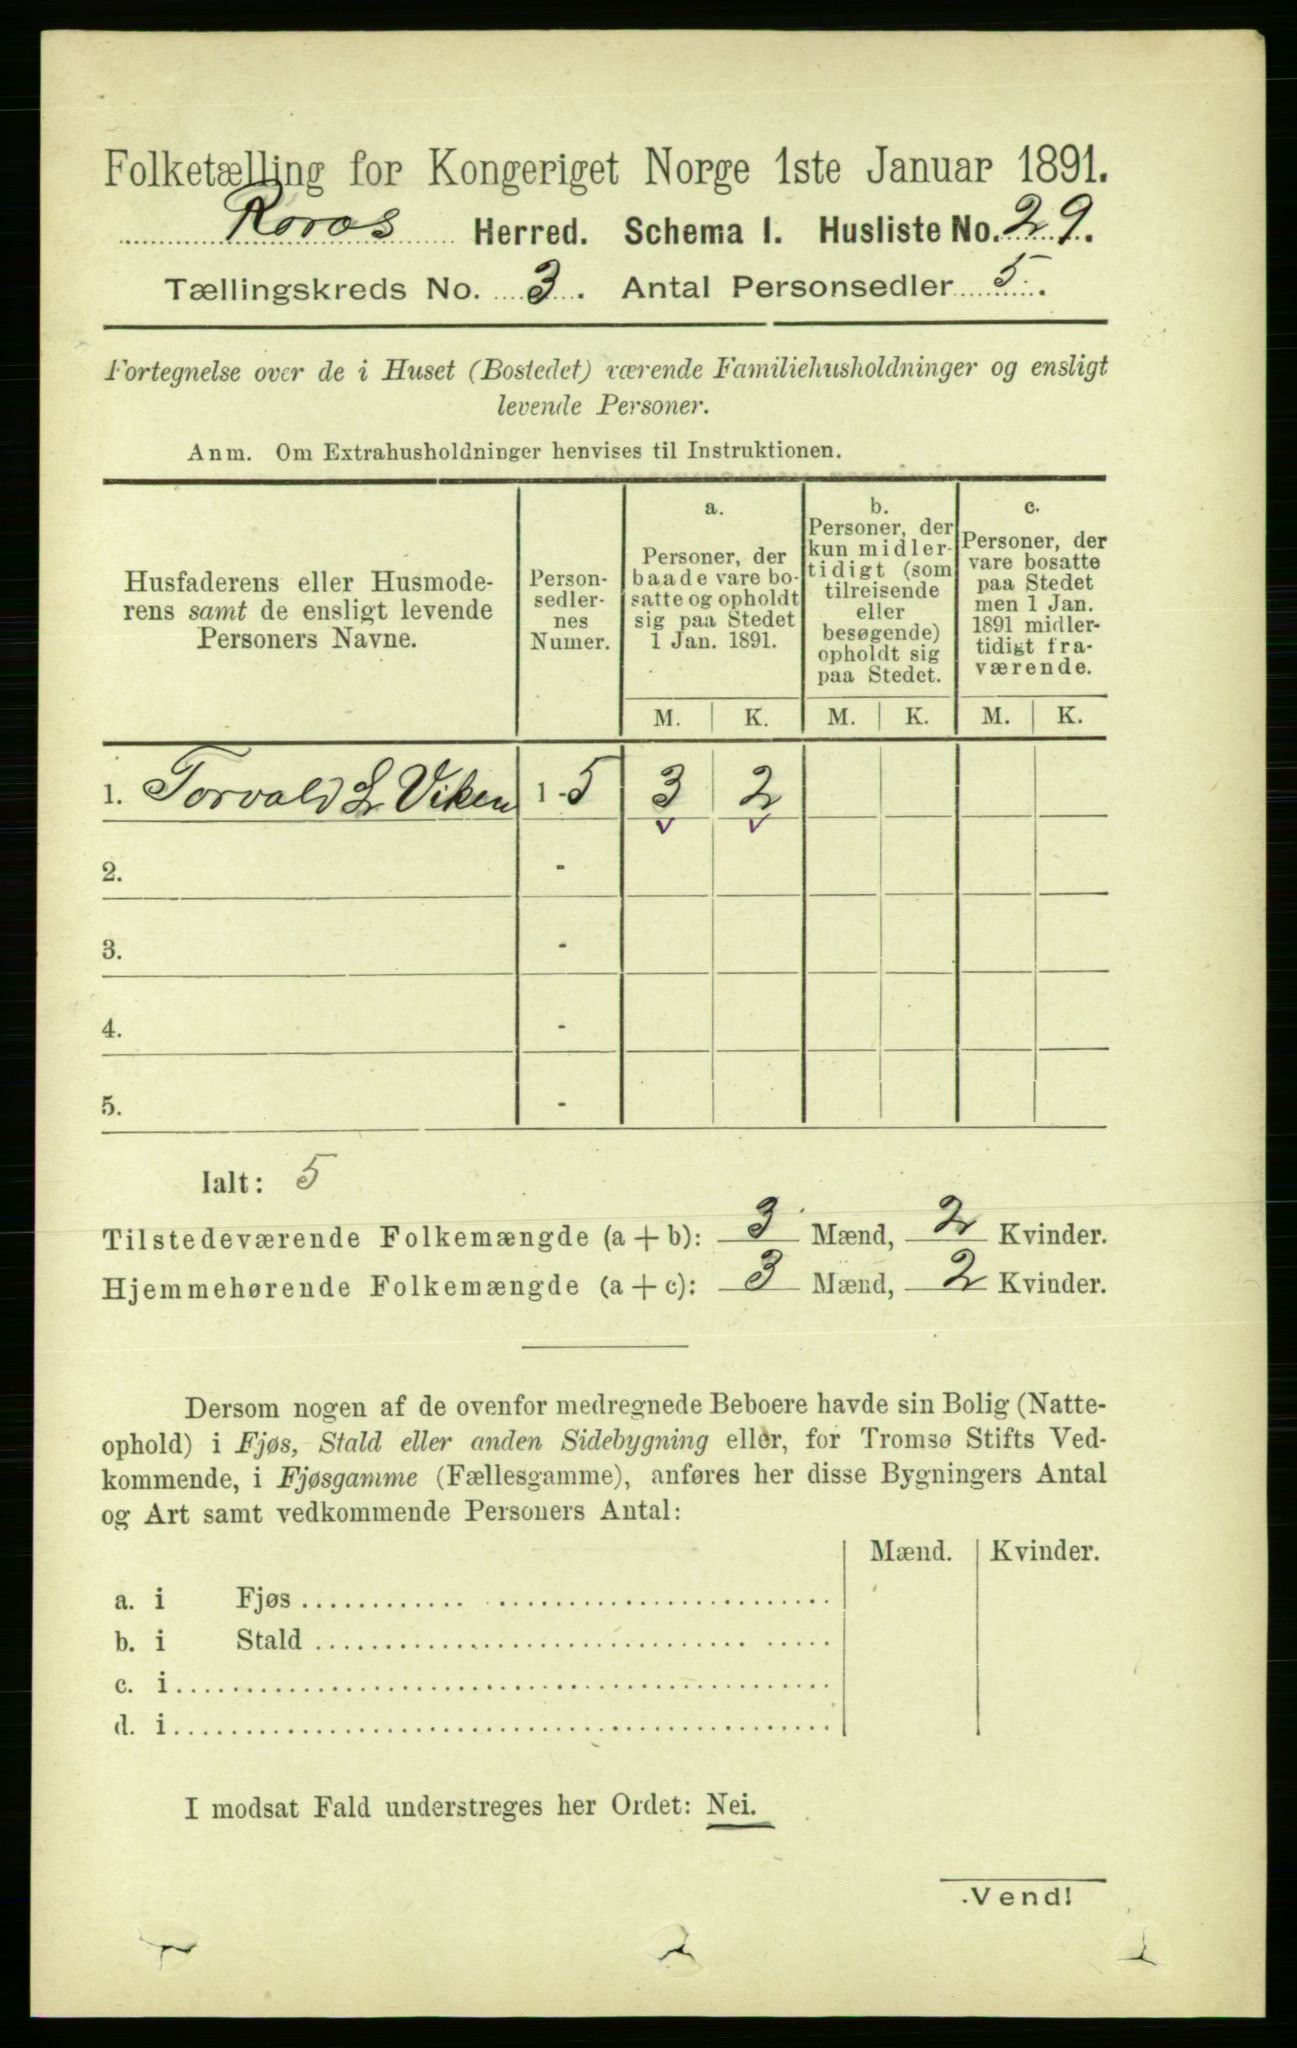 Folketælling for Kongeriget Norge 1ste Januar 1891.
Roros Herred. Schema I. Husliste No. 29.
Tællingskreds No. 3. Antal Personsedler 5.
Fortegnelse over de i Huset (Bostedet) værende Familiehusholdninger og ensligt
levende Personer.
Anm. Om Extrahusholdninger henvises til Instruktionen.
Husfaderens eller Husmode-
rens samt de ensligt levende
Personers Navne.
Person-
sedler-
nes
Numer.
a.
Personer, der
baade vare bo-
satte og opholdt
sig paa Stedet
1 Jan. 1891.
b.
Personer, der
kun midler-
tidigt (som
tilreisende
eller
besøgende)
opholdt sig
paa Stedet.
c.
Personer, der
vare bosatte
paa Stedet
men 1 Jan.
1891 midler-
tidigt fra-
værende.
M. K. M. K. M. K.
1. Torvald L. Viken 1-5 3 2
2. -
3. -
4. -
5. -
Ialt: 5
Tilstedeværende Folkemængde (a + b): 3 Mænd, 2 Kvinder.
Hjemmehørende Folkemængde (a + c): 3 Mænd, 2 Kvinder.
Dersom nogen af de ovenfor medregnede Beboere havde sin Bolig (Natte-
ophold) i Fjøs, Stald eller anden Sidebygning eller, for Tromsø Stifts Ved-
kommende, i Fjøsgamme (Fællesgamme), anføres her disse Bygningers Antal
og Art samt vedkommende Personers Antal:
Mænd. Kvinder.
a. i Fjøs
b. i Stald
c. i
d. i
I modsat Fald understreges her Ordet: Nei.
Vend!